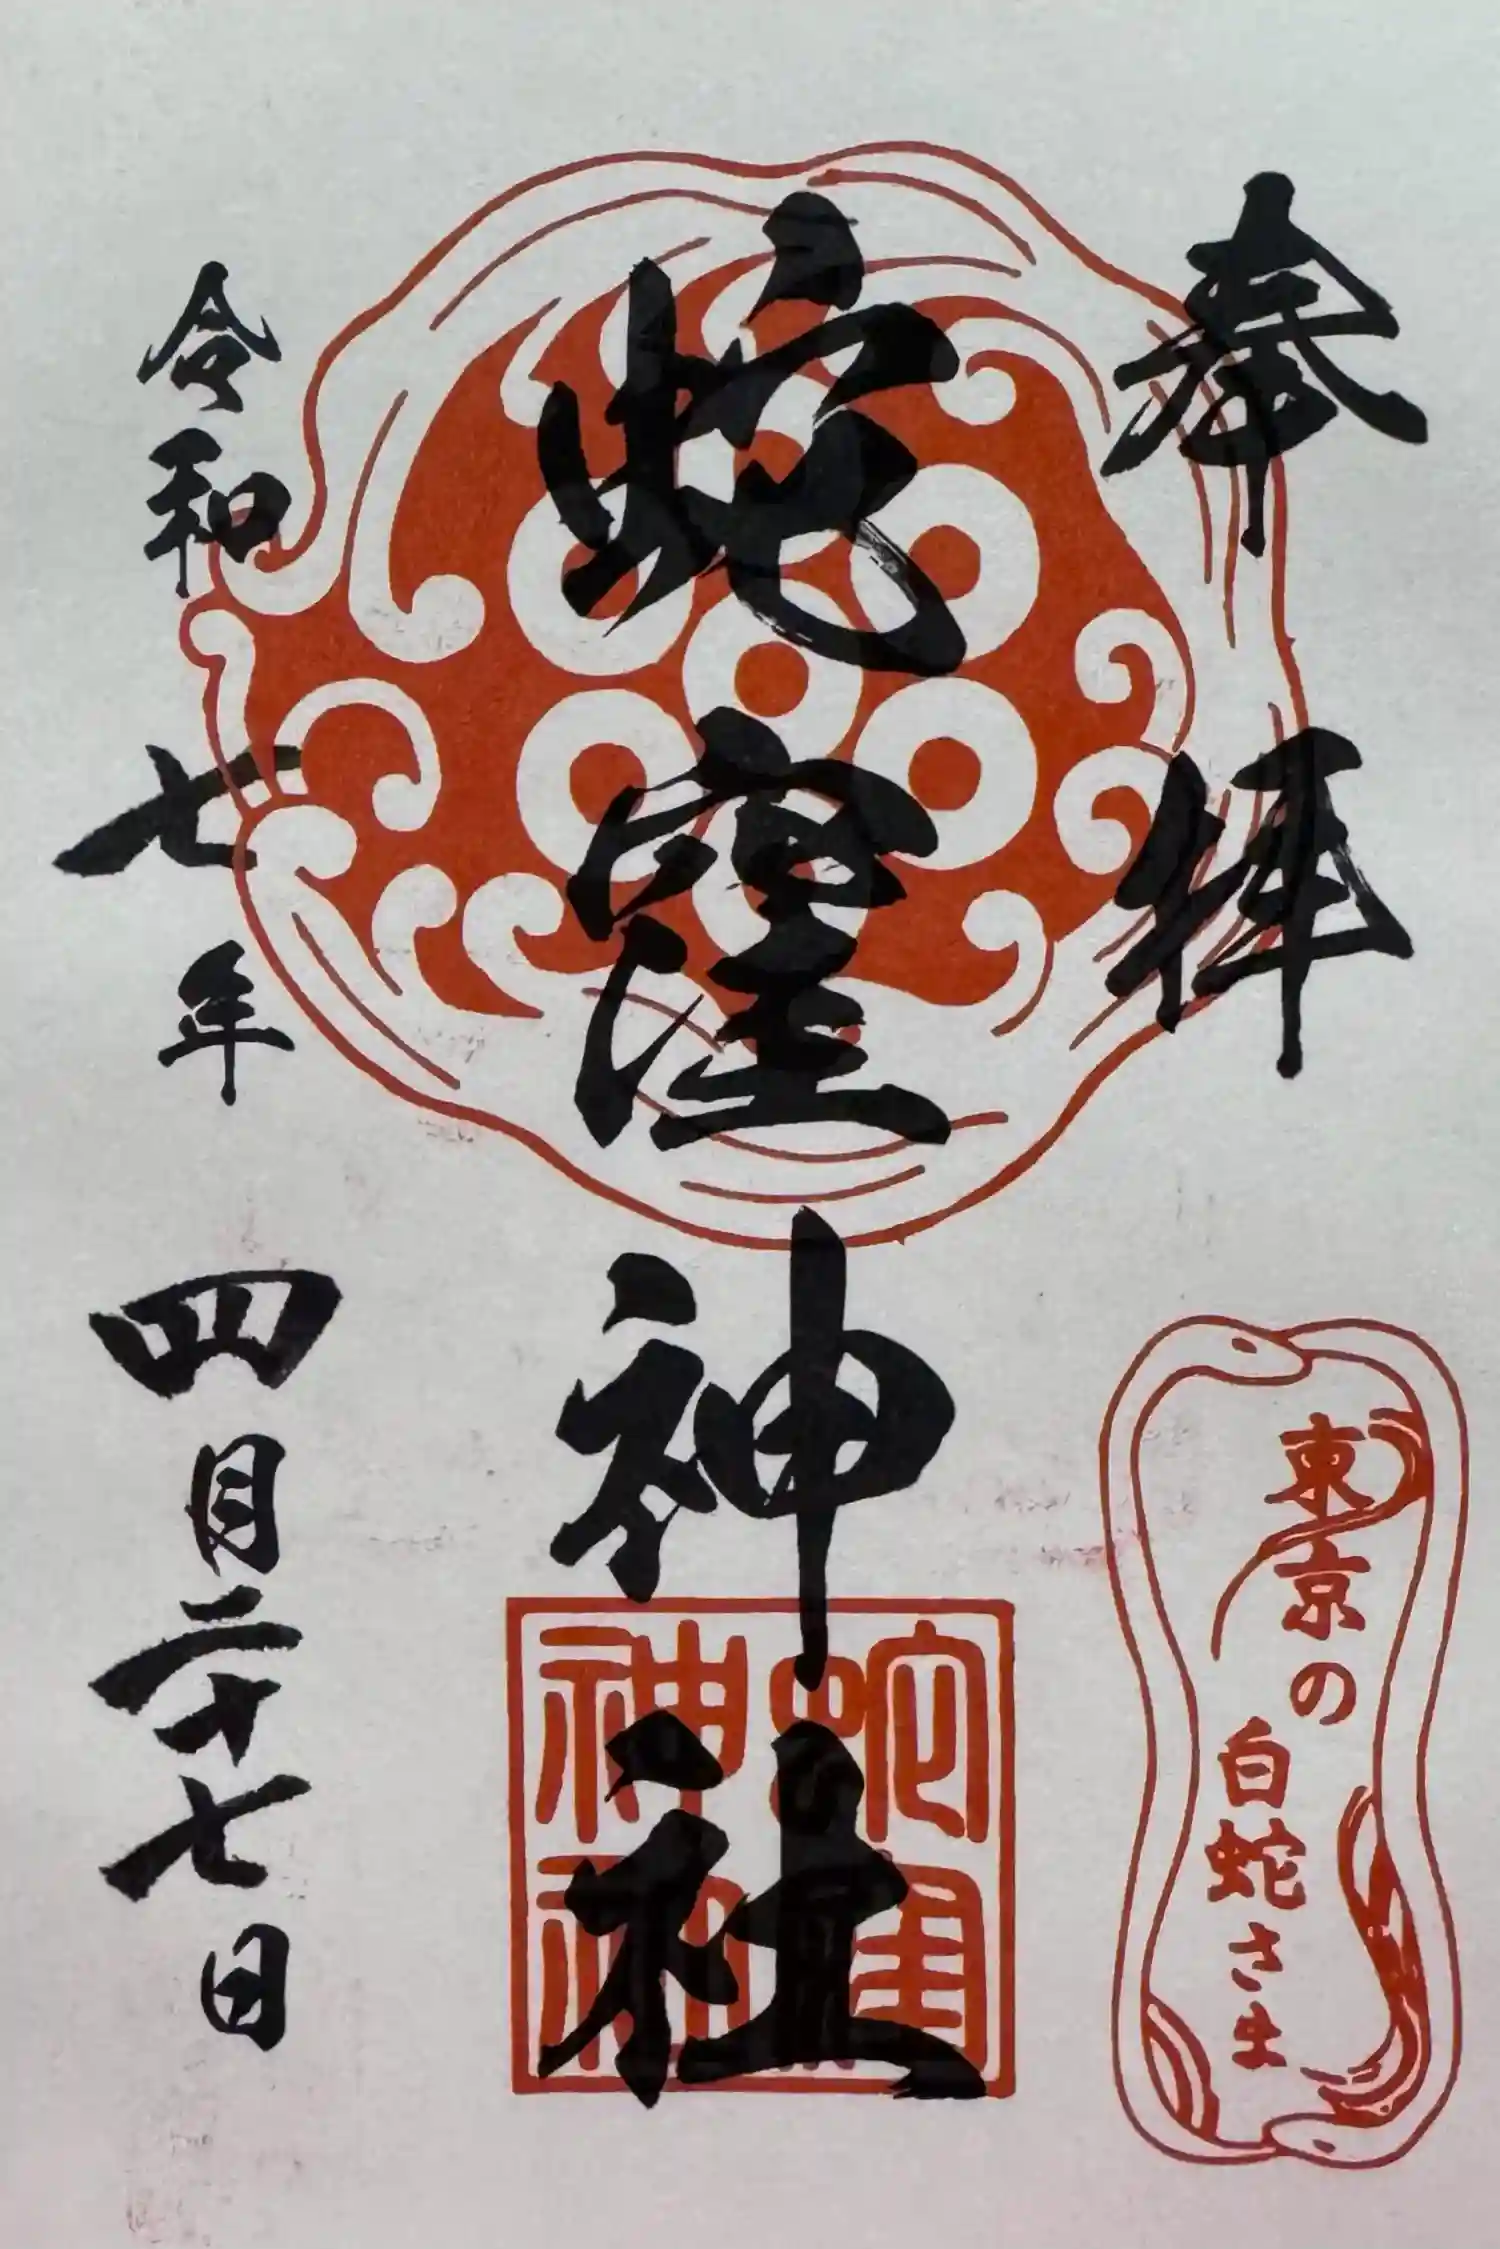 奉拝
蛇窪神社
令和七年四月二十七日
東京の
白蛇さま
蛇窪
神社